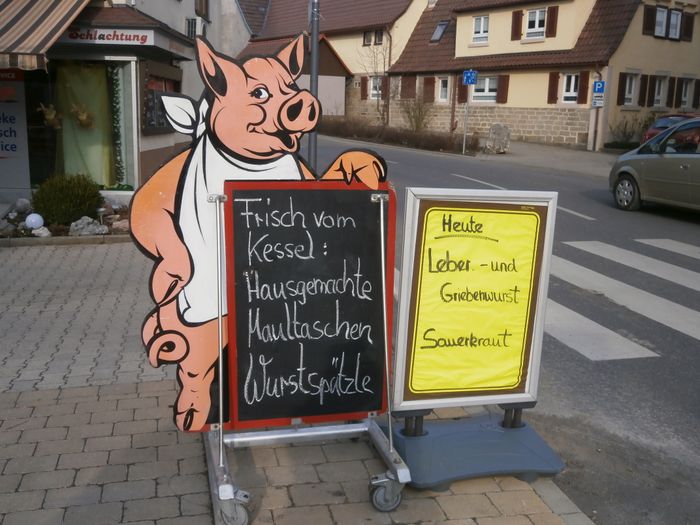 Schlachtung
Frisch vom
Kessel:
Hausgemachte
Maultaschen
Wurstspätzle
Heute
Leber - und
Griebenwurst
Sauerkraut
P